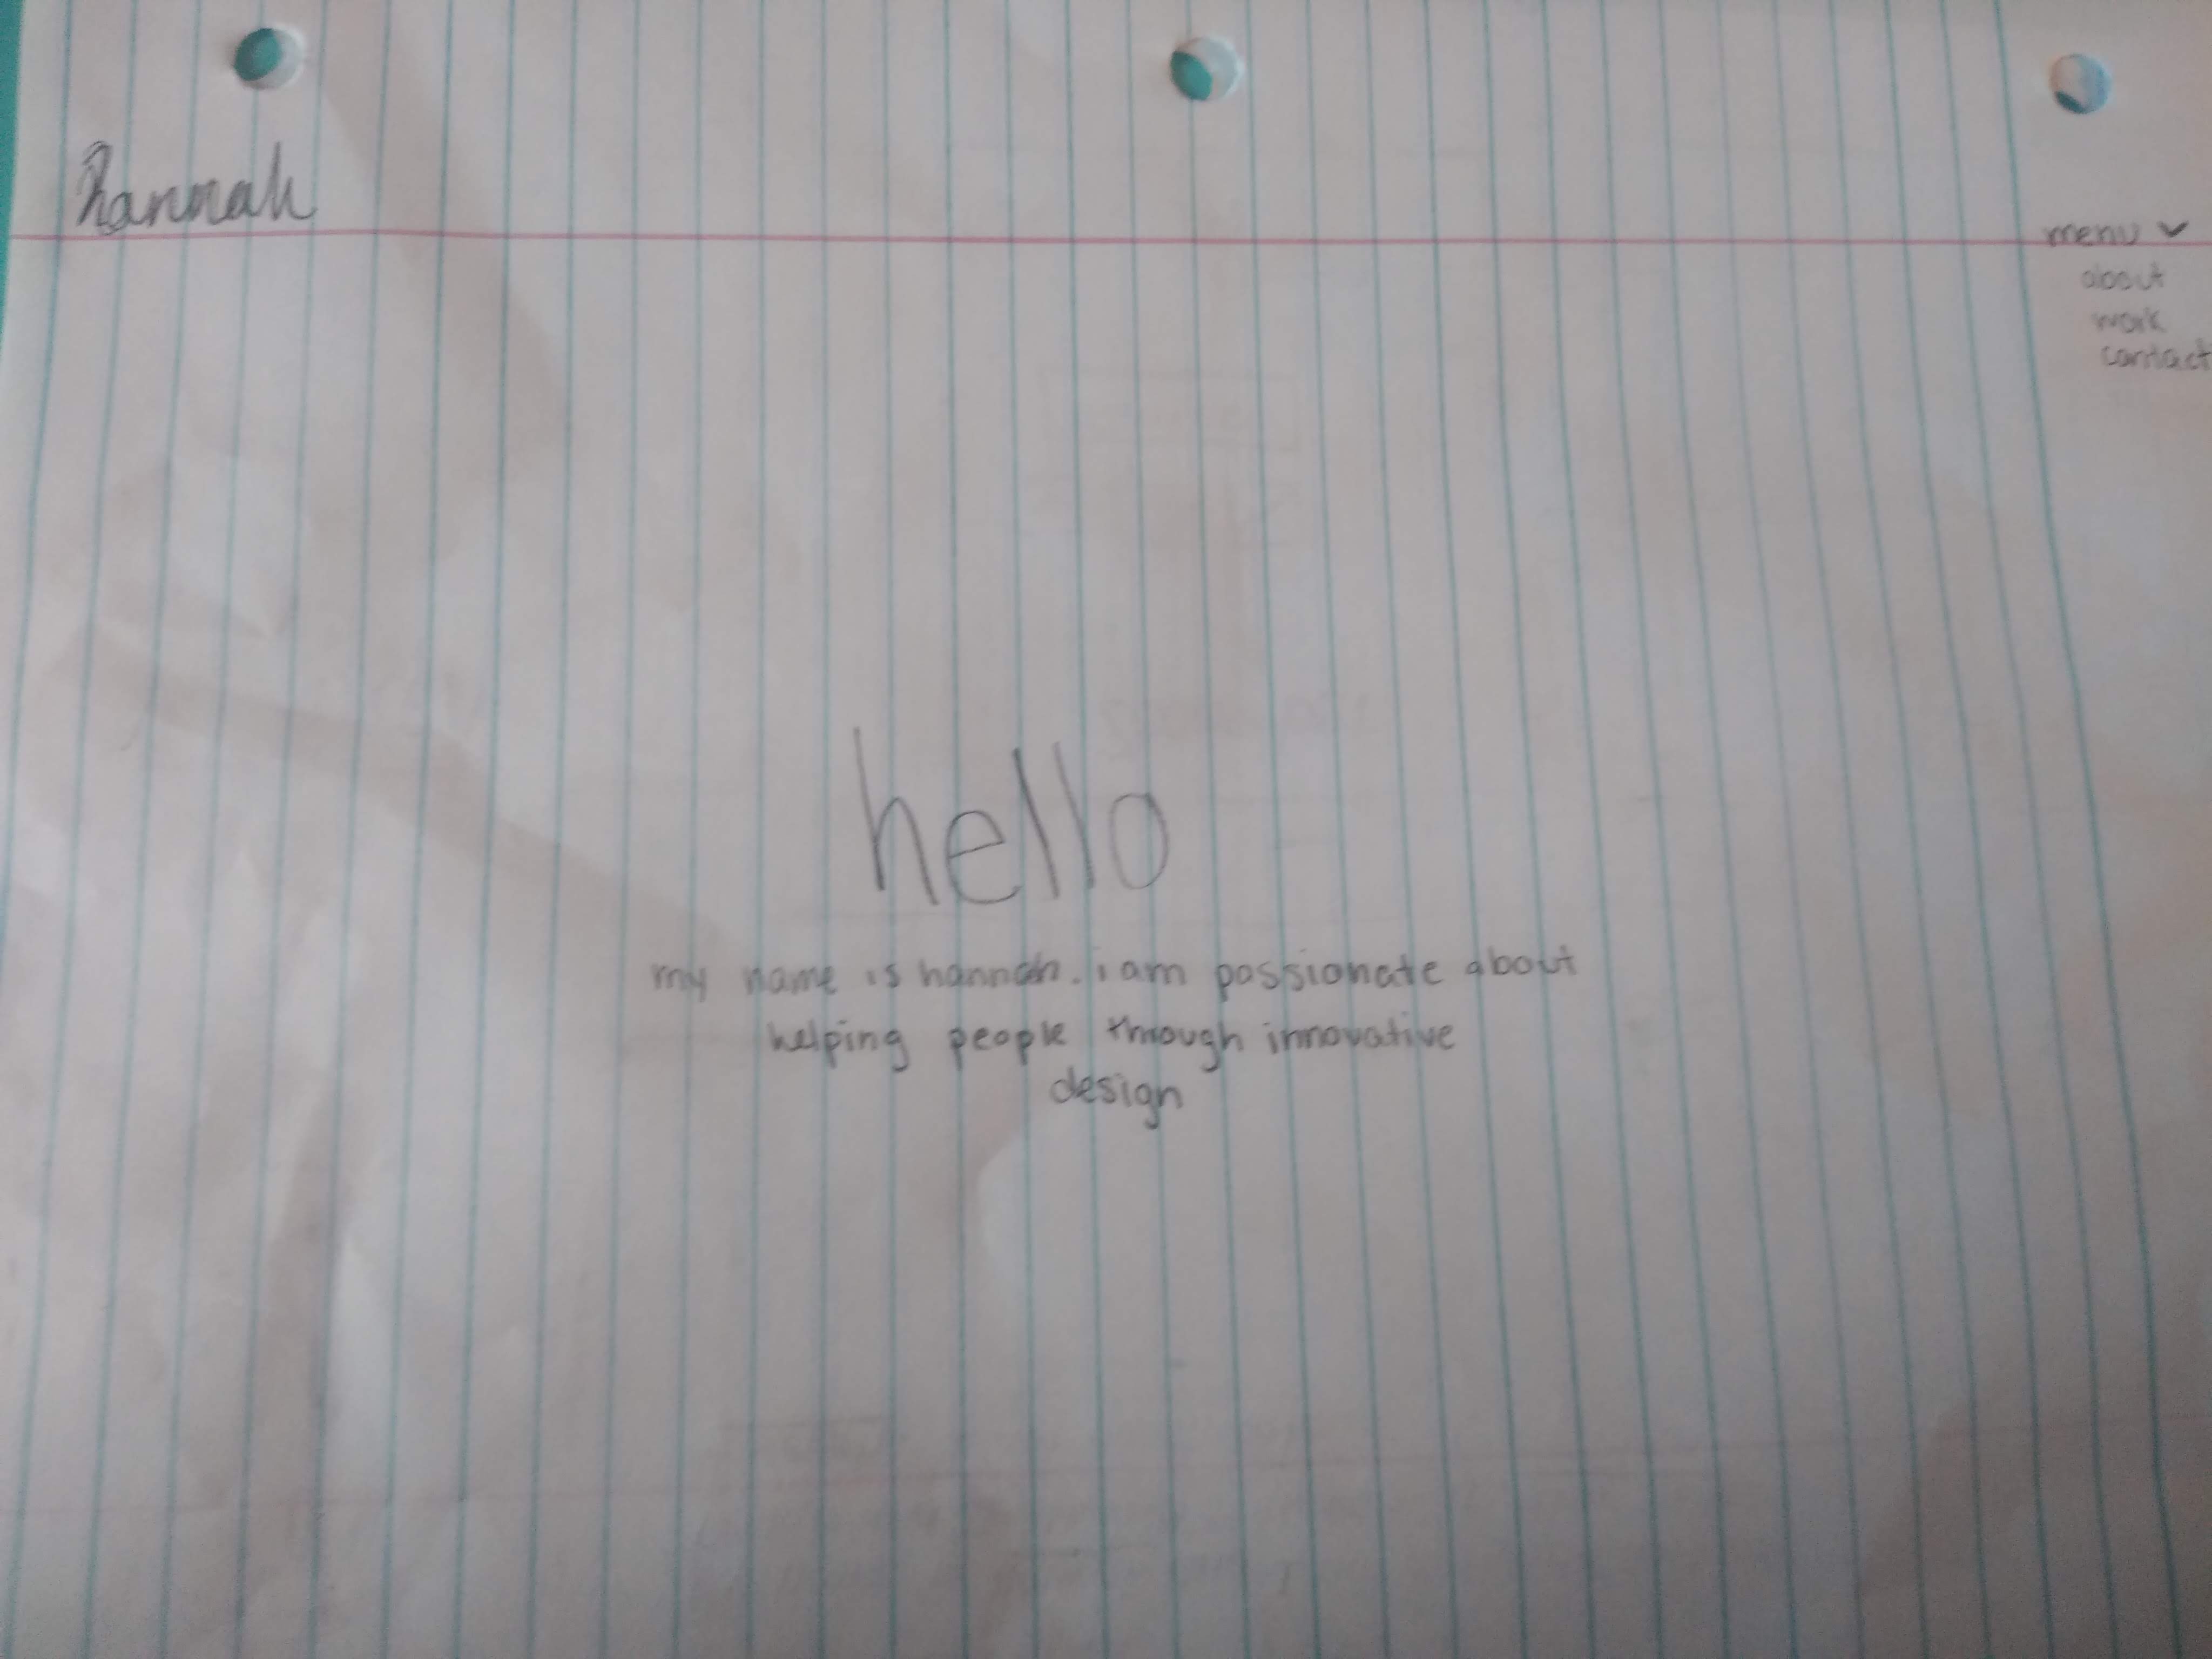 hannah
menu
about
work
contact
hello
my name is hannah. i am passionate about
helping people through innovative
design